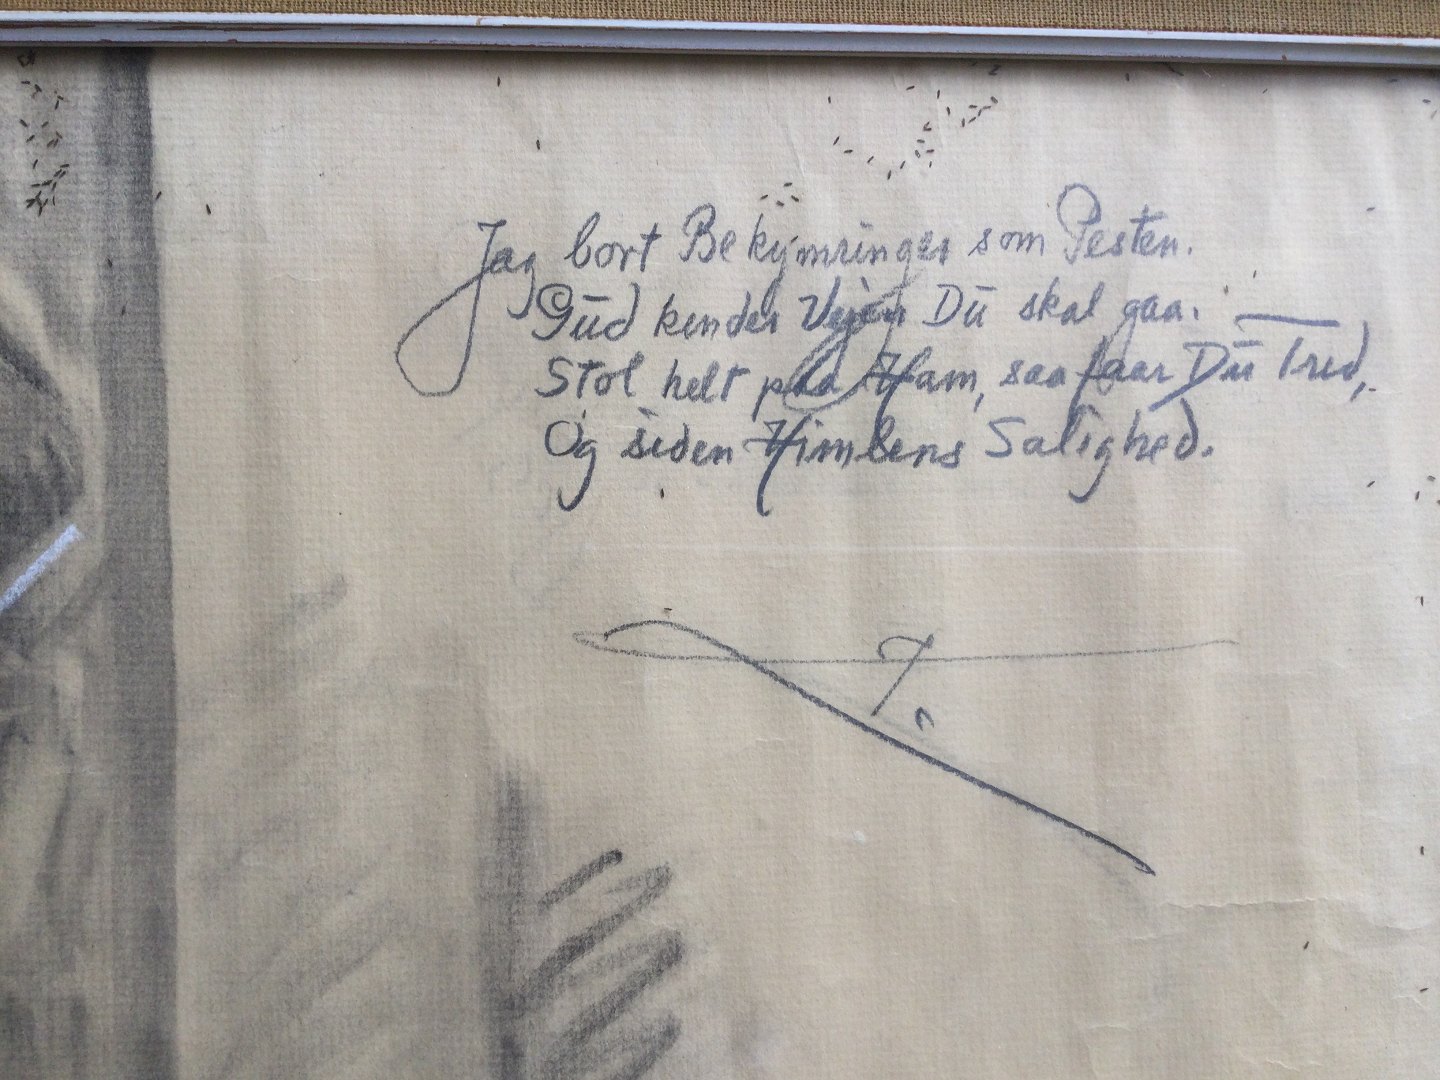 Jag bort Bekymringer som Pesten.
Gud kender Vejen Du skal gaa. —
Stol helt paa Ham, saa faar Du Fred,
Og siden Himlens Salighed.